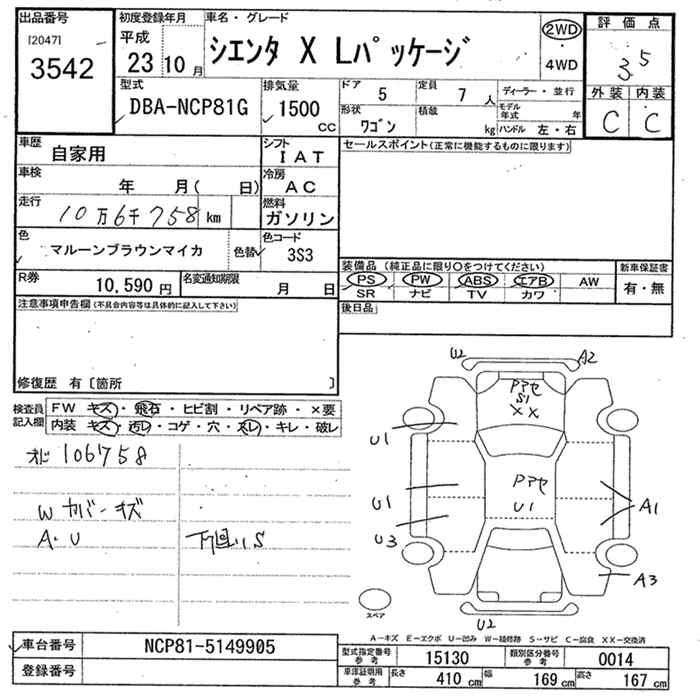 出品番号
[2047]
3542
初度登録年月
平成
23年10月
車名・グレード
シエンタ X Lパッケージ
2WD
4WD
評価点
3.5
外装 内装
C C
型式
DBA-NCP81G
排気量
1500 cc
ドア 5
定員 7人
ディーラー・並行
形状 ワゴン
積載 kg
モデル年式 年
ハンドル 左・右
車歴 自家用
シフト IAT
セールスポイント(正常に機能するものに限ります)
車検 年 月( 日)
冷房 AC
走行 10万6千758 km
燃料 ガソリン
色 マルーンブラウンマイカ
色替
色コード 3S3
装備品 (純正品に限り○をつけてください)
新車保証書
PS PW ABS エアB AW
SR ナビ TV カワ
有・無
R券 10,590円
名変通知期限 月 日
後日品
注意事項申告欄(不具合内容等は具体的に記入して下さい)
修復歴 有〔箇所 〕
検査員記入欄
FW キズ・飛石・ヒビ割・リペア跡・×要
内装 キズ・汚レ・コゲ・穴・スレ・キレ・破レ
106758
W カバーキズ
A・U
下回りS
U2
A2
Pアセ
S1
XX
U1
U1
Pアセ
U1
A1
U3
A3
U2
スペア
A―キズ E―エクボ U―凹み W―補修跡 S―サビ C―腐食 XX―交換済
車台番号 NCP81-5149905
登録番号
型式指定番号 参考 15130
類別区分番号 参考 0014
車庫証明用 参考 長さ 410 cm 幅 169 cm 高さ 167 cm